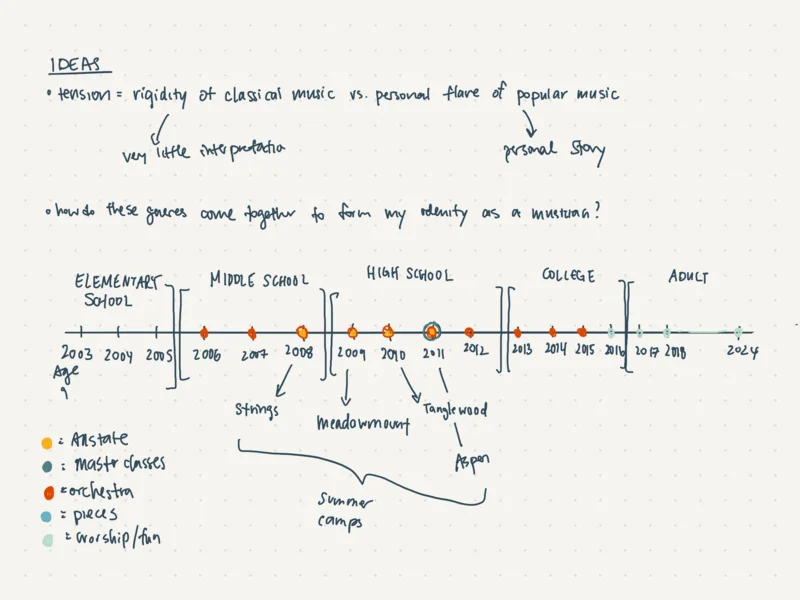 IDEAS
• tension = rigidity of classical music vs. personal flare of popular music
very little interpretation
personal story
• how do these genres come together to form my identity as a musician?
ELEMENTARY SCHOOL
MIDDLE SCHOOL
HIGH SCHOOL
COLLEGE
ADULT
2003 2004 2005 2006 2007 2008 2009 2010 2011 2012 2013 2014 2015 2016 2017 2018 2024
Age
9
Strings
Meadowmount
Tanglewood
Aspen
Summer
camps
= Allstate
= Master classes
= orchestra
= pieces
= worship/fun